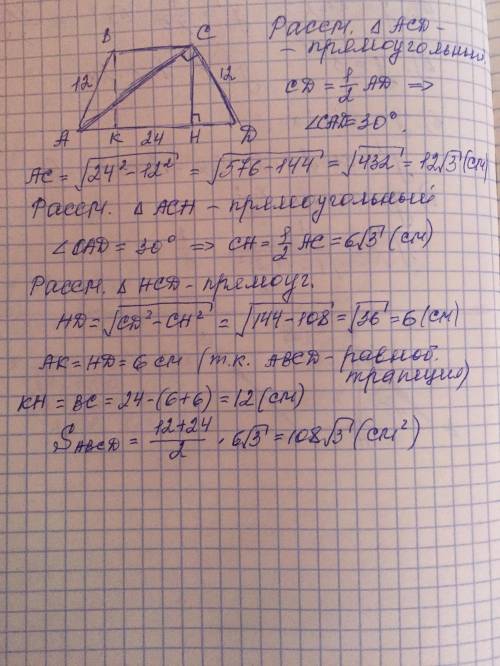 B C
12 12
A K 24 H D
Рассм. △ ACD -
- прямоугольный.
CD = 1/2 AD =>
∠CAD=30°.
AC = √24²-12² = √576-144 = √432 = 12√3 (см)
Рассм. △ ACH - прямоугольный
∠CAD = 30° => CH = 1/2 AC = 6√3 (см)
Рассм. △ HCD - прямоуг.
HD = √CD²-CH² = √144-108 = √36 = 6 (см)
AK = HD = 6 см (т.к. ABCD - равноб.
трапеция)
KH = BC = 24-(6+6) = 12 (см)
S ABCD = 12+24/2 · 6√3 = 108√3 (см²)